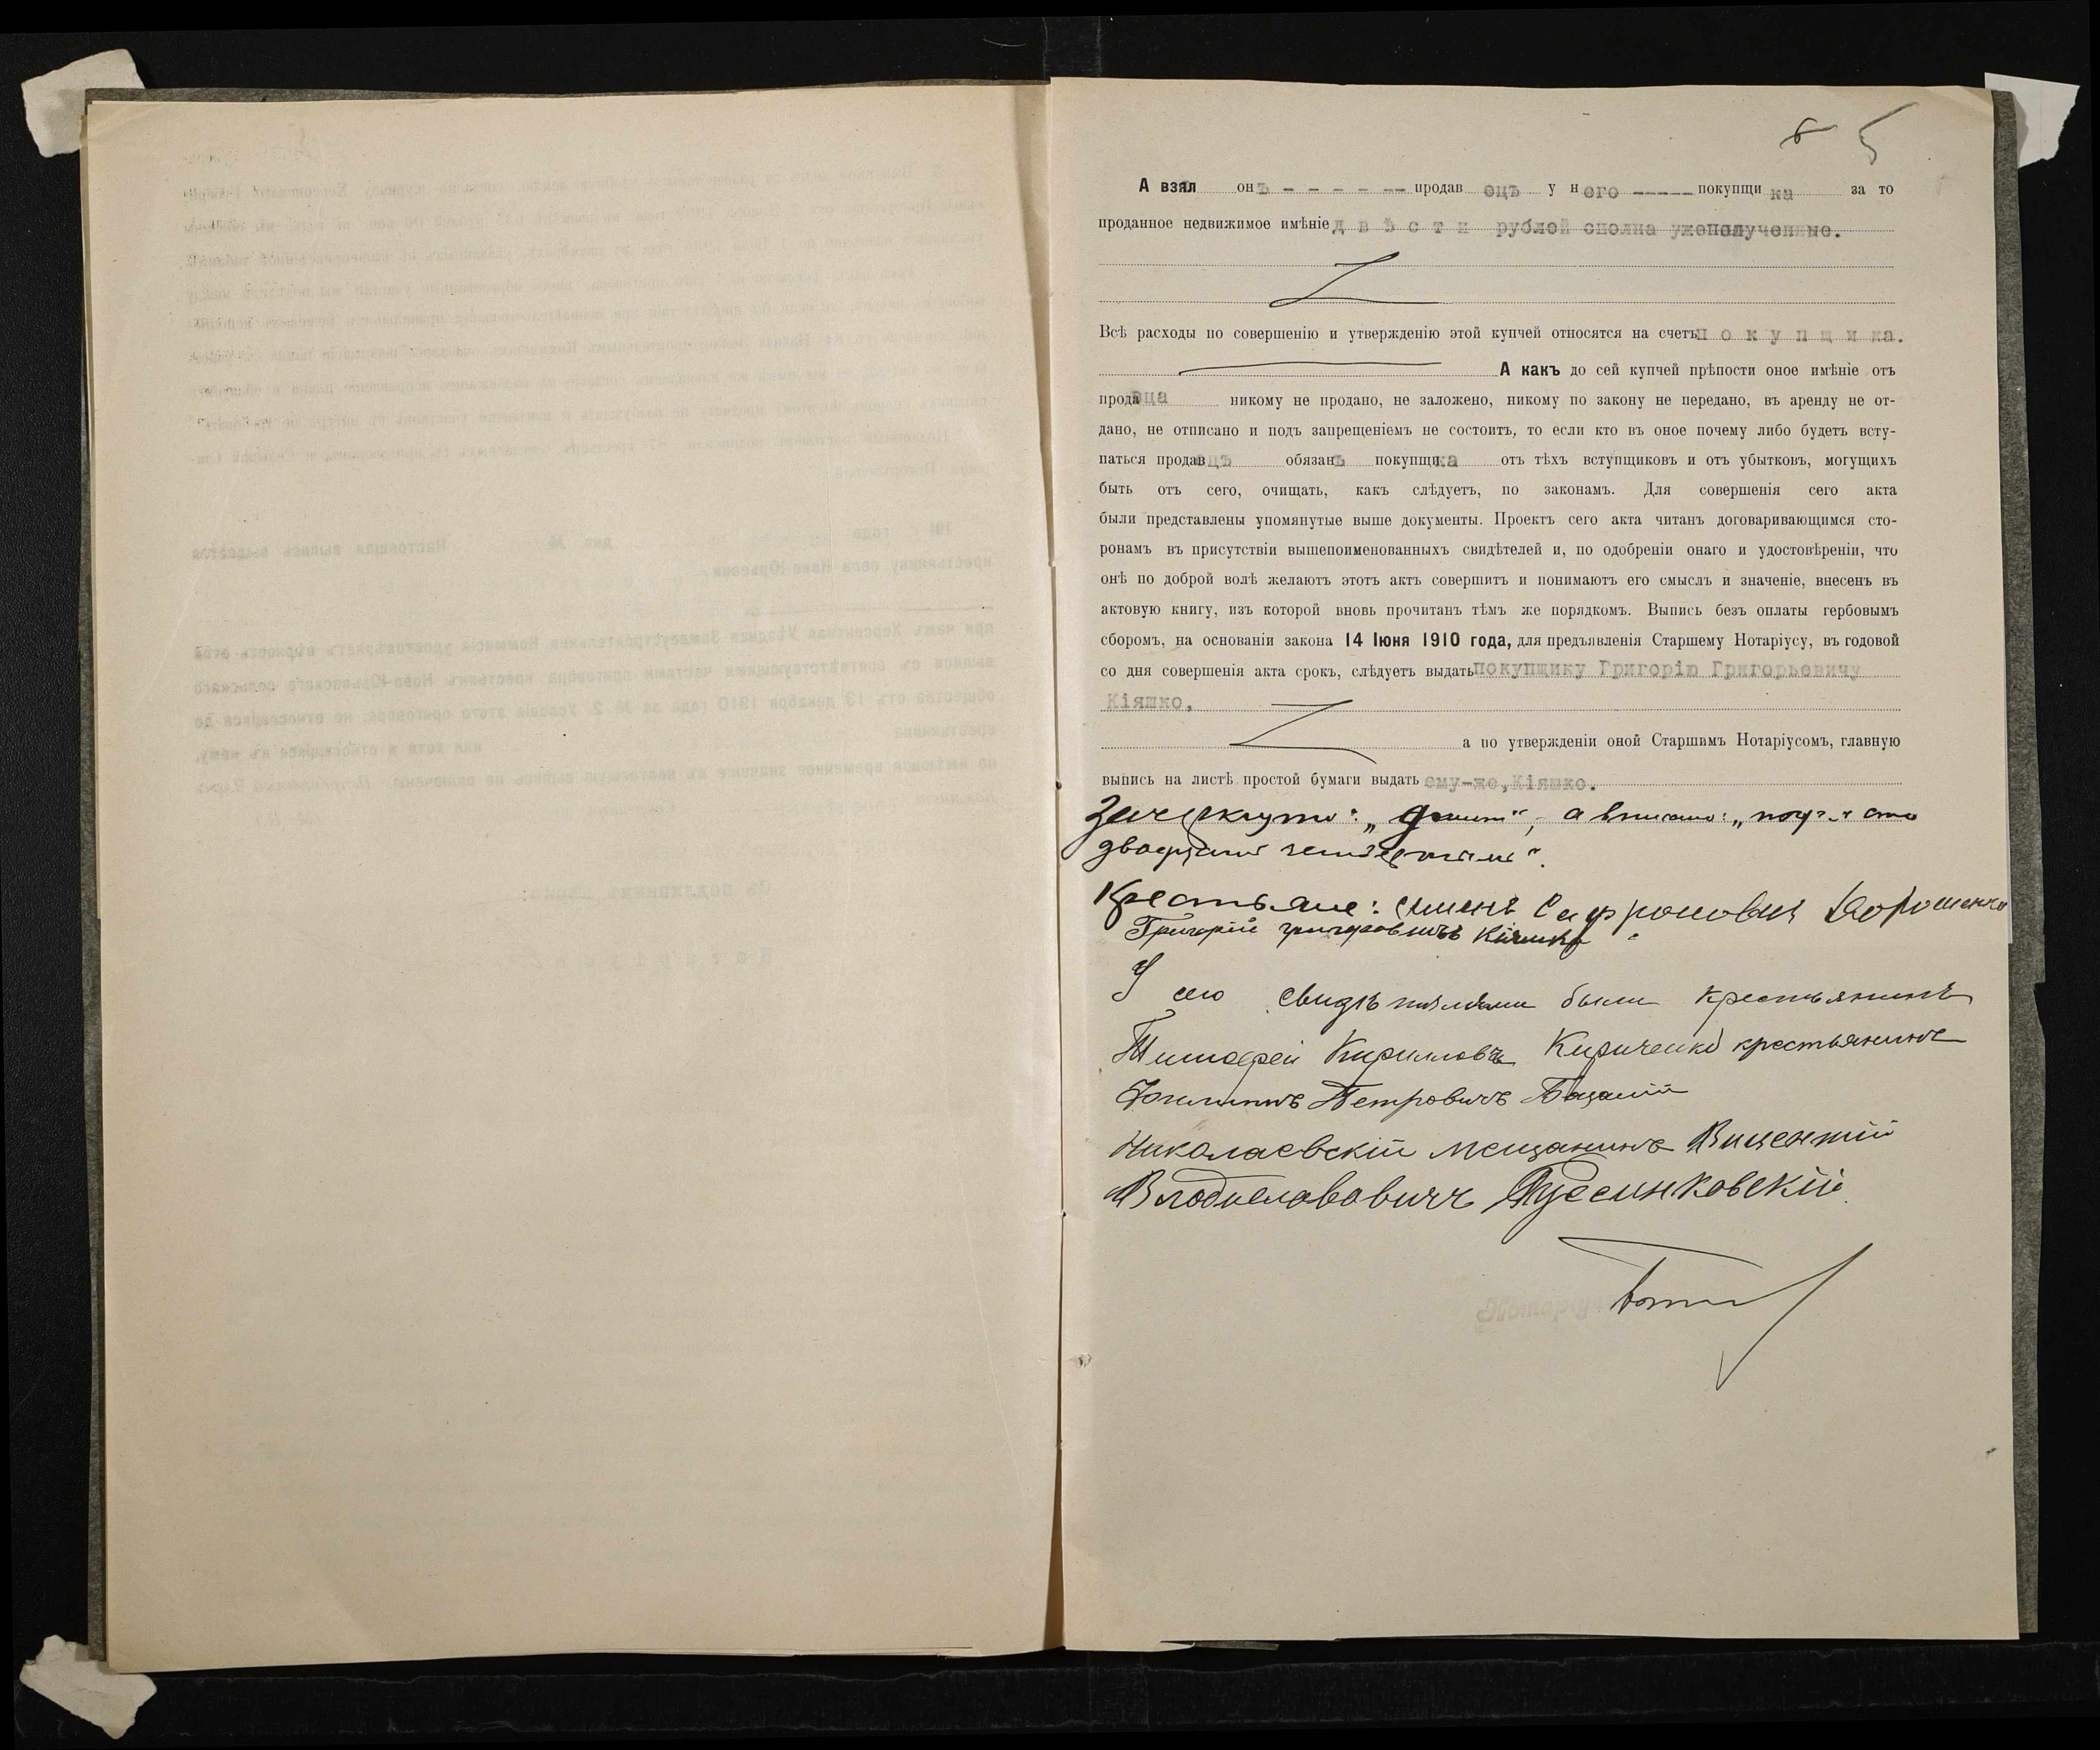 5
А взял онъ - - - - - -- продав ецъ у него ----- покупщи ка за то
проданное недвижимое имѣніе д в ѣ с т и рублей сполна уже полученные.
Всѣ расходы по совершенію и утвержденію этой купчей относятся на счетъ п о к у п щ и ка.
А какъ до сей купчей прѣпости оное имѣніе от
продавца никому не продано, не заложено, никому по закону не передано, въ аренду не от-
дано, не отписано и подъ запрещеніемъ не состоитъ, то если кто въ оное почему либо будетъ всту-
паться продавецъ обязанъ покупщика отъ тѣхъ вступщиковъ и отъ убытковъ, могущихъ
быть отъ сего, очищать, какъ слѣдуетъ, по законамъ. Для совершенія сего акта
были представлены упомянутые выше документы. Проектъ сего акта читанъ договаривающимся сто-
ронамъ въ присутствіи вышепоименованныхъ свидѣтелей и, по одобреніи онаго и удостовѣреніи, что
онѣ по доброй волѣ желаютъ этотъ актъ совершить и понимаютъ его смыслъ и значеніе, внесенъ въ
актовую книгу, изъ которой вновь прочитанъ тѣмъ же порядкомъ. Выпись безъ оплаты гербовымъ
сборомъ, на основаніи закона 14 Іюня 1910 года, для предъявленія Старшему Нотаріусу, въ годовой
со дня совершенія акта срокъ, слѣдуетъ выдать покупщику Григорію Григорьевичу
Кіяшко,
а по утвержденіи оной Старшимъ Нотаріусомъ, главную
выпись на листѣ простой бумаги выдать ему-же, Кіяшко.
Зачеркнуто: а вписано:
Крестьяне: Сафроновичъ Дорошенко
Григорій Григоровичъ Кіяшко
У сего свидѣтелями были крестьянинъ
Тимофей Кирилловъ Кириченко крестьянинъ
Филиппъ Петровичъ
Николаевскій мещанинъ Вицентій
Владиславовичъ